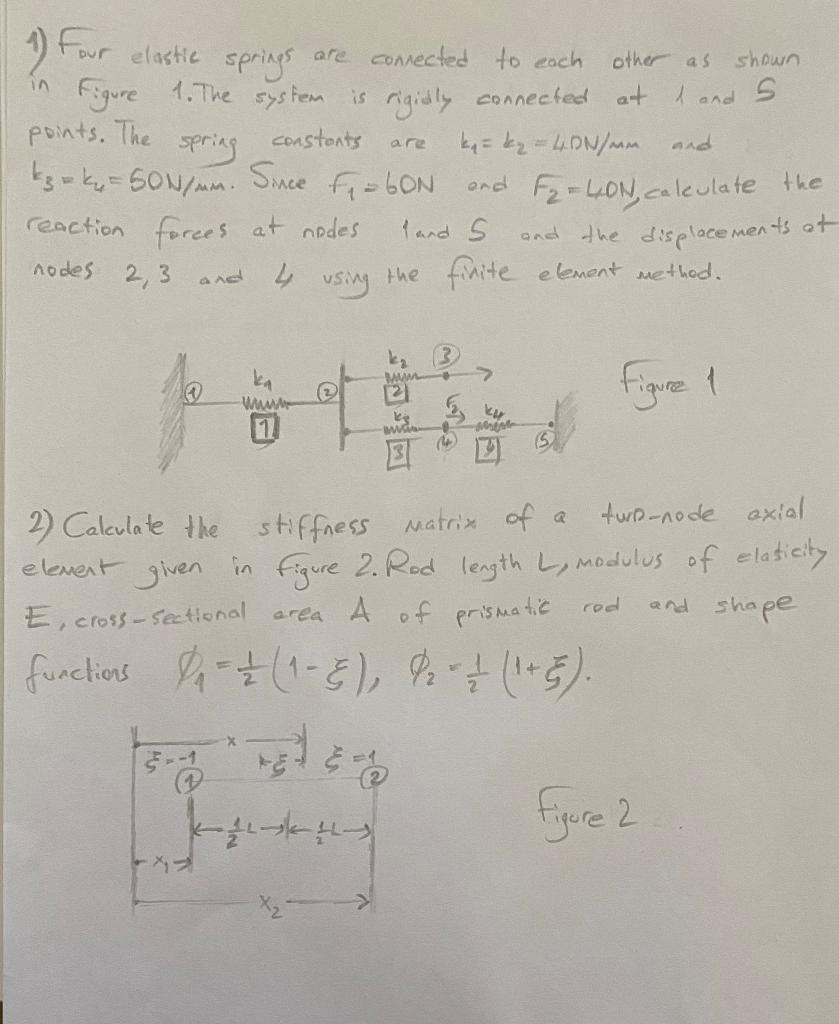 1) Four elastic springs are connected to each other as shown
in Figure 1. The system is rigidly connected at 1 and 5
points. The spring constants are k₁ = k₂ = 40N/mm and
k₃ = k₄ = 50N/mm. Since F₁ = 60N and F₂ = 40N, calculate the
reaction forces at nodes 1 and 5 and the displacements at
nodes 2, 3 and 4 using the finite element method.
k₂ ③
k₁
① ② 2
1 k₃ F₂ k₄
3 ④ 4 ⑤
Figure 1
2) Calculate the stiffness matrix of a two-node axial
element given in figure 2. Rod length L, modulus of elaticity
E, cross-sectional area A of prismatic rod and shape
functions Ø₁ = 1/2 (1 - ξ), Ø₂ = 1/2 (1 + ξ).
x
ξ = -1 ξ ξ = 1
① ②
1/2 L 1/2 L
x₁
x₂
Figure 2